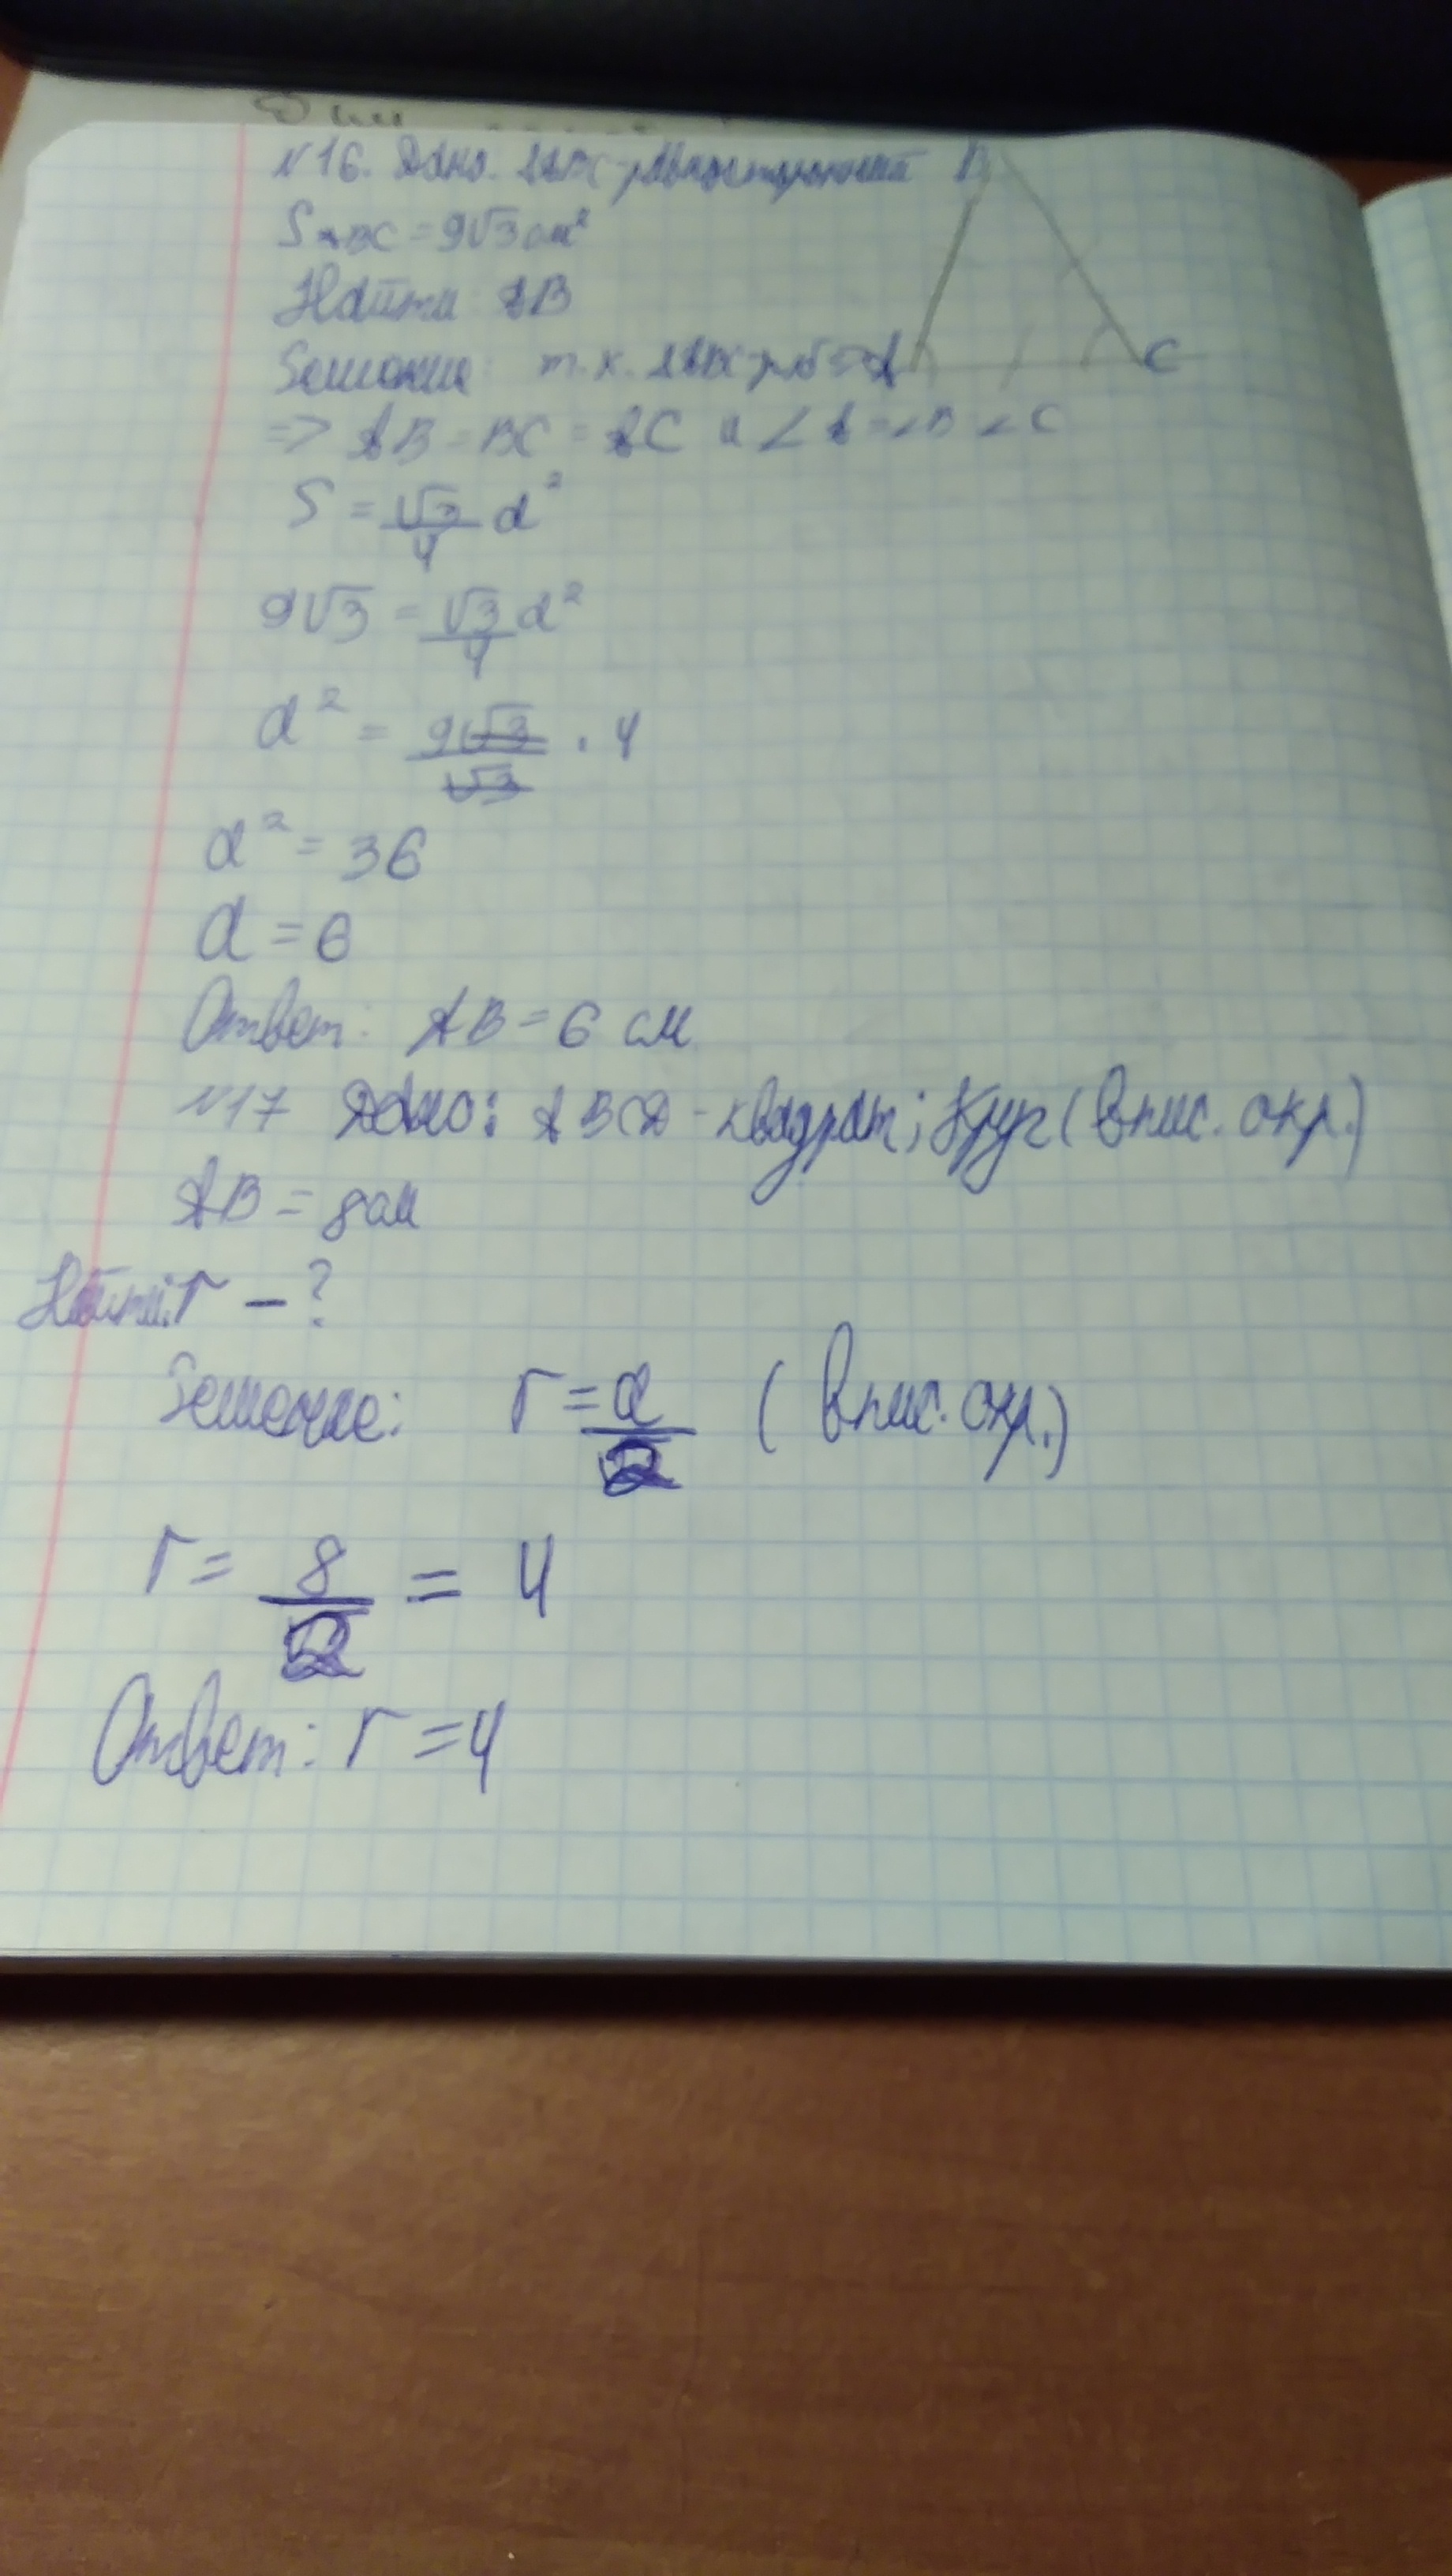 №16. Дано: ΔABC-равносторонний B
S ABC = 9√3 см²
Найти: AB
Решение: т.к. ΔABC-р/б => A C
=> AB = BC = AC и ∠A = ∠B ∠C
S = √3/4 a²
9√3 = √3/4 a²
a² = 9√3/√3 · 4
a² = 36
a = 6
Ответ: AB = 6 см
№17 Дано: ABCD - квадрат; Круг (впис. окр.)
AB = 8см
Найти: r - ?
Решение: r = a/2 (впис. окр.)
r = 8/2 = 4
Ответ: r = 4